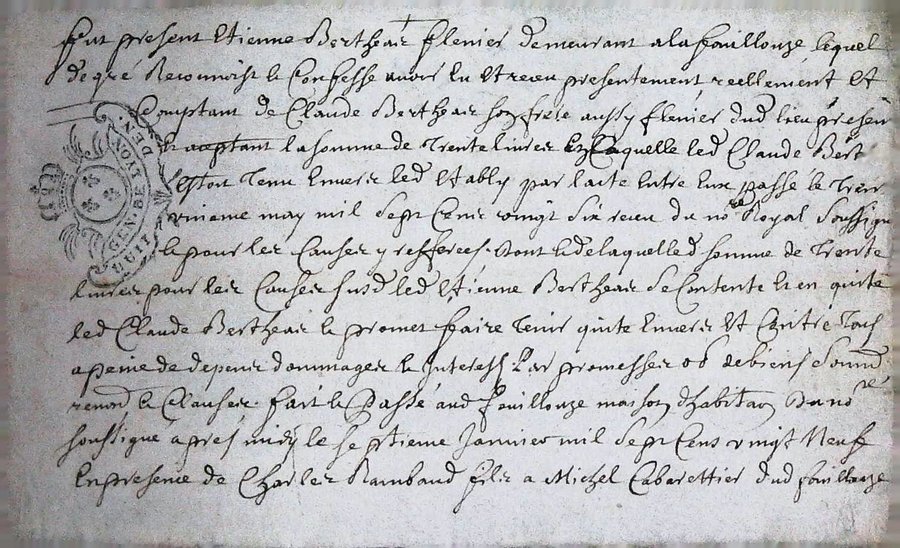 fut present Etienne Berthear flenier demeurant a la fouillouze lequel
de gre Reconnoist & Confesse avoir eu et receu presentement reellement et
Comptant de Claude Berthear son frere aussy flenier dud lieu present
& acceptant la somme de Trente livres laquelle led Claude Bert
estoit Tenu envers led Etably par l'acte entre Eux passé le
may mil Sept Cens vingt Six receu du nore Royal Soussigne
& pour les Causes y refferees. dont & de laquelled somme de Trente
livres pour les Causes susd led Etienne Berthear se Contente & en quitte
led Claude Berthear & promet faire Tenir quitte envers et Contre Tous
a peine de depens dommages & Interests Par promesses ob de biens
renon & Clauses. fait & Passé aud fouillouze maison d'habitaon Du nore
soussigne apres midy le septieme Janvier mil Sept Cens vingt Neuf
En presence de Charles Rambaud fils a Michel Cabarettier dud fouillouze
GEN. DE LYON.
HUIT DEN.